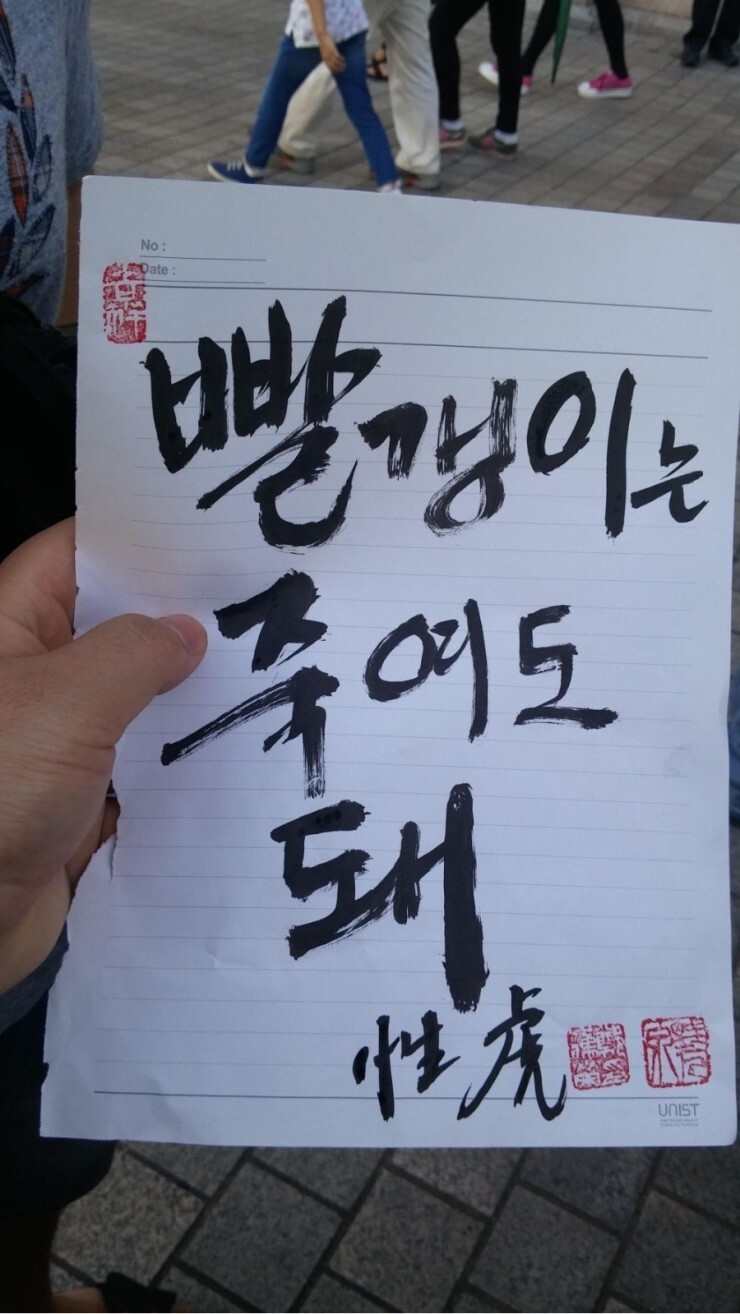 No :
Date :
빨갱이는
죽여도
돼
性虎
UNIST